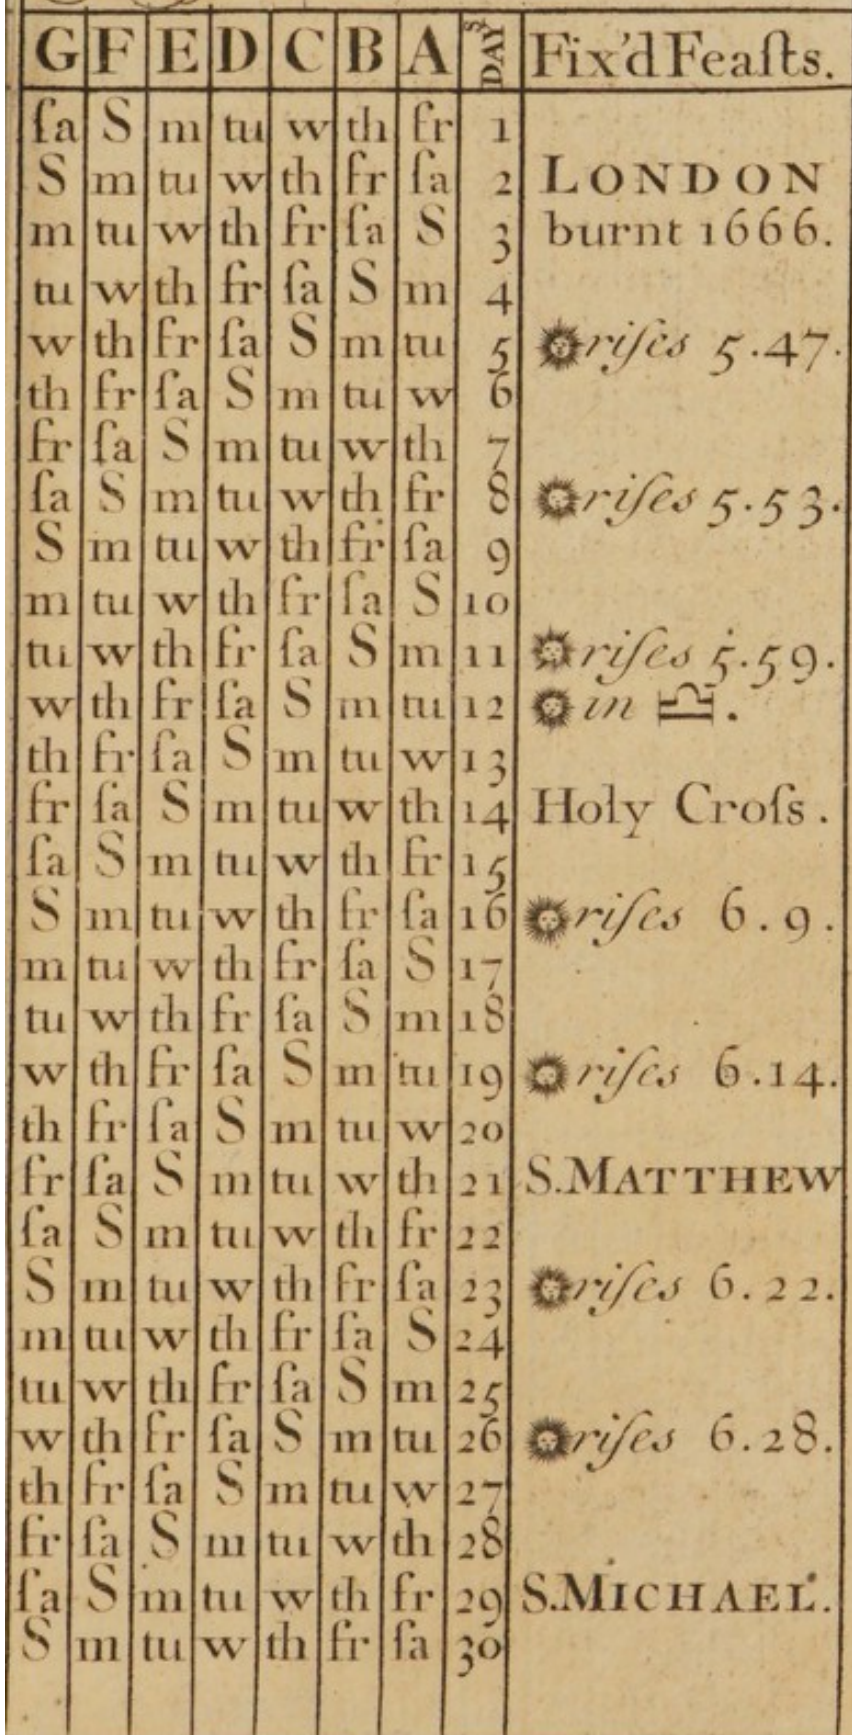 G F E D C B A DAYS Fix'd Feaſts.
ſa S m tu w th fr 1
S m tu w th fr ſa 2 LONDON
m tu w th fr ſa S 3 burnt 1666.
tu w th fr ſa S m 4
w th fr ſa S m tu 5 riſes 5.47.
th fr ſa S m tu w 6
fr ſa S m tu w th 7
ſa S m tu w th fr 8 riſes 5.53.
S m tu w th fr ſa 9
m tu w th fr ſa S 10
tu w th fr ſa S m 11 riſes 5.59.
w th fr ſa S m tu 12 in ♎.
th fr ſa S m tu w 13
fr ſa S m tu w th 14 Holy Croſs.
ſa S m tu w th fr 15
S m tu w th fr ſa 16 riſes 6.9.
m tu w th fr ſa S 17
tu w th fr ſa S m 18
w th fr ſa S m tu 19 riſes 6.14.
th fr ſa S m tu w 20
fr ſa S m tu w th 21 S.MATTHEW
ſa S m tu w th fr 22
S m tu w th fr ſa 23 riſes 6.22.
m tu w th fr ſa S 24
tu w th fr ſa S m 25
w th fr ſa S m tu 26 riſes 6.28.
th fr ſa S m tu w 27
fr ſa S m tu w th 28
ſa S m tu w th fr 29 S.MICHAEL.
S m tu w th fr ſa 30